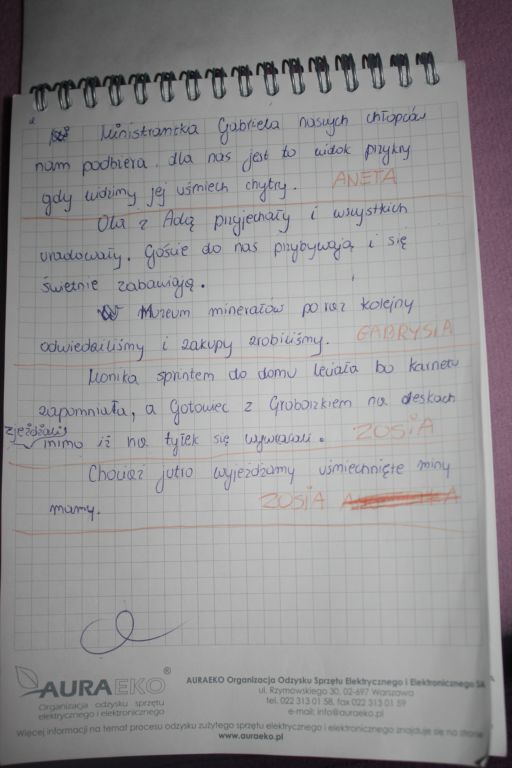 Ministrantka Gabriela naszych chłopców
nam podbiera. dla nas jest to widok przykry
gdy widzimy jej uśmiech chytry. ANETA
Ola z Adą przyjechały i wszystkich
uradowały. Goście do nas przybywają i się
świetnie zabawiają.
Muzeum minerałów po raz kolejny
odwiedziliśmy i zakupy zrobiliśmy. GABRYSIA
Monika sprintem do domu leciała bo karnetu
zapomniała, a Gotowiec z na deskach
zjeżdżali
mimo iż na tyłek się wywracali. ZOSIA
Chociaż jutro wyjeżdżamy uśmiechnięte miny
mamy. ZOSIA
AURAEKO®
Organizacja odzysku sprzętu
elektrycznego i elektronicznego
AURAEKO Organizacja Odzysku Sprzętu Elektrycznego i Elektronicznego SA
ul. Rzymowskiego 30, 02-697 Warszawa
tel. 022 313 01 58, fax 022 313 01 59
e-mail: info@auraeko.pl
Więcej informacji na temat procesu odzysku zużytego sprzętu elektrycznego i elektronicznego znajduje się na stronie
www.auraeko.pl